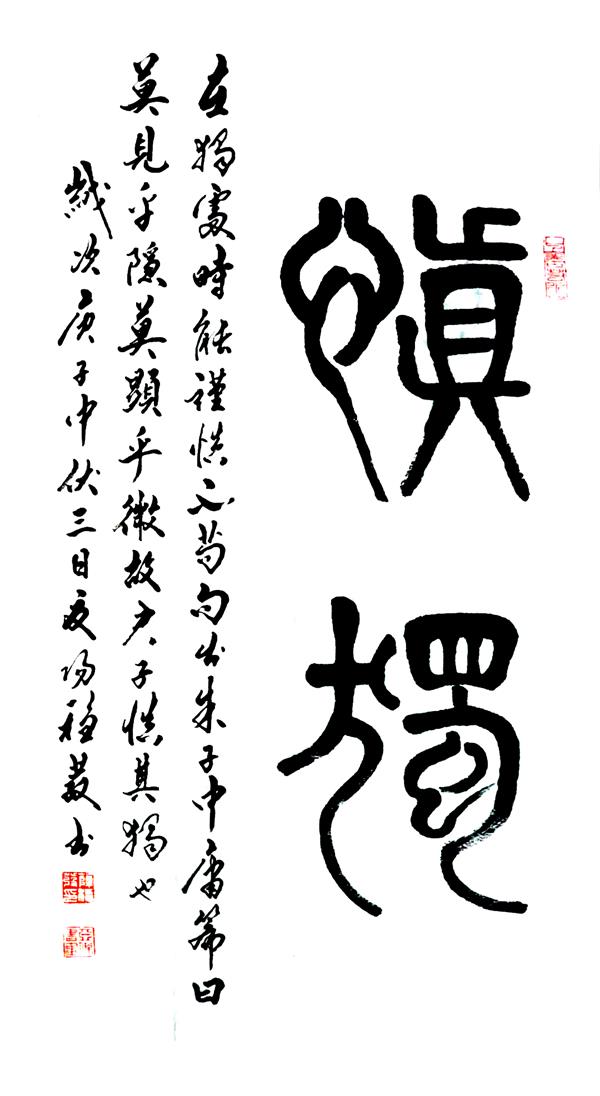 慎獨
在獨處時能謹慎不苟句出朱子中庸篇曰
莫見乎隱莫顯乎微故君子慎其獨也
歲次庚子中伏三日书